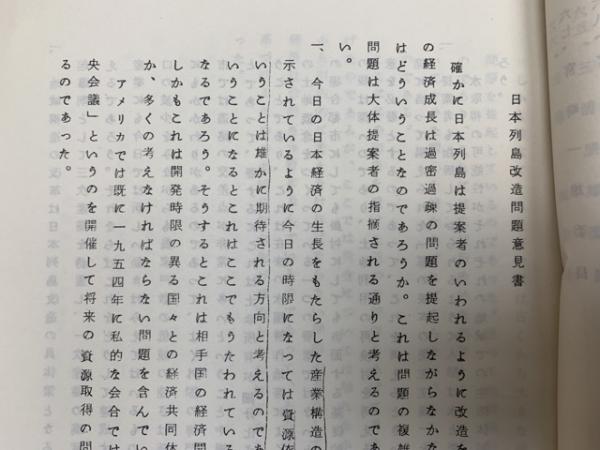 日本列島改造問題意見書
確かに日本列島は提案者のいわれるように改造を
の経済成長は過密過疎の問題を提起しながらなかな
はどういうことなのであろうか。これは問題の複雑
問題は大体提案者の指摘される通りと考えるのであ
い。
一、今日の日本経済の生長をもたらした産業構造の
示されているように今日の時限になっては資源依
いうことは雄かに期待される方向と考えるのであ
いうことになるとこれはここでもうたわれている
なるであろう。そうするとこれは相手国の経済問
しかもこれは開発時限の異る国々との経済共同体
か、多くの考えなければならない問題を含んでい
アメリカでは既に一九五四年に私的な会合では
央会議」というのを開催して将来の資源取得の問
るのであった。